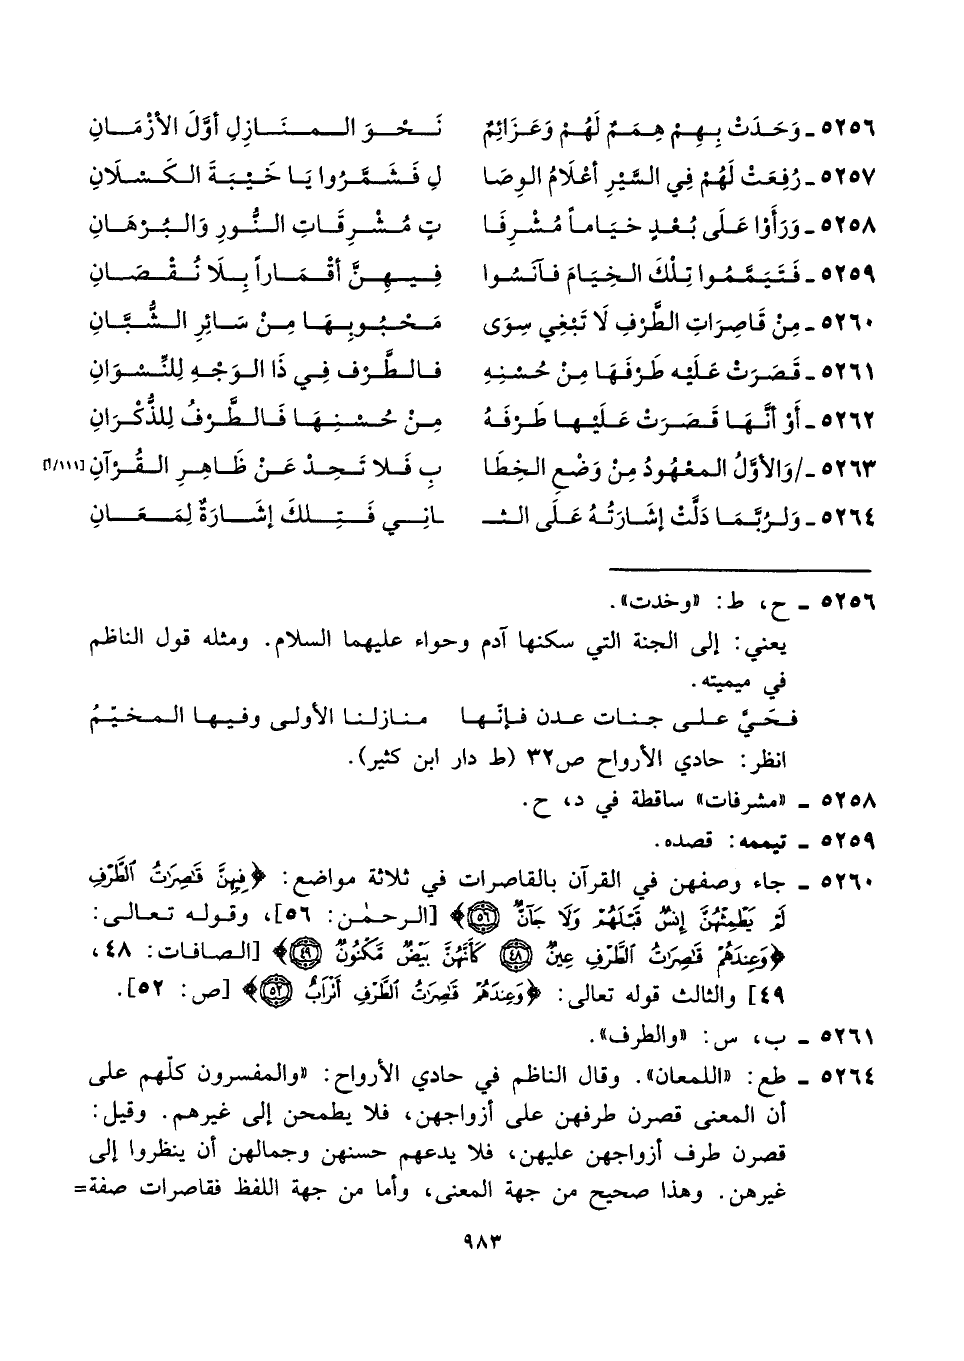 ٥٢٥٦ ـ وَحَدَتْ بِهِمْ هِمَمٌ لَهُمْ وَعَزَائِمٌ نَحْوَ المَنَازِلِ أوَّلَ الأزْمَانِ
٥٢٥٧ ـ رُفِعَتْ لَهُمْ فِي السَّيْرِ أعْلَامُ الوِصَا لِ فَشَمَّرُوا يَا خَيْبَةَ الكَسْلَانِ
٥٢٥٨ ـ وَرَأَوْا عَلَى بُعْدٍ خيَاماً مُشْرِفَا تٍ مُشْرِقَاتِ النُّورِ وَالبُرْهَانِ
٥٢٥٩ ـ فَتَيَمَّمُوا تِلْكَ الخِيَامَ فآنَسُوا فِيهِنَّ أقْمَاراً بِلَا نُقْصَانِ
٥٢٦٠ ـ مِنْ قَاصِرَاتِ الطَّرْفِ لَا تَبْغِي سِوَى مَحْبُوبِهَا مِنْ سَائِرِ الشُّبَّانِ
٥٢٦١ ـ قَصَرَتْ عَلَيْه طَرْفَهَا مِنْ حُسْنِهِ فالطَّرْف فِي ذَا الوَجْهِ لِلنِّسْوَانِ
٥٢٦٢ ـ أوْ أنَّهَا قَصَرَتْ عَلَيْها طَرْفَهُ مِنْ حُسْنِهَا فَالطَّرْفُ لِلذُّكْرَانِ
٥٢٦٣ ـ /وَالأوَّلُ المعْهُودُ مِنْ وَضْعِ الخِطَا بِ فَلا تَحِدْ عَنْ ظَاهِرِ القُرْآنِ [١١١/أ]
٥٢٦٤ ـ وَلرُبَّمَا دَلَّتْ إشَارَتُهُ عَلَى الثـ ـانِي فَتِلكَ إشَارَةٌ لِمَعَانِ
٥٢٥٦ ـ ح، ط: «وخدت».
يعني: إلى الجنة التي سكنها آدم وحواء عليهما السلام. ومثله قول الناظم
في ميميته.
فحَيَّ على جنات عدن فإنّها منازلنا الأولى وفيها المخيّمُ
انظر: حادي الأرواح ص٣٢ (ط دار ابن كثير).
٥٢٥٨ ـ «مشرفات» ساقطة في د، ح.
٥٢٥٩ ـ تيممه: قصده.
٥٢٦٠ ـ جاء وصفهن في القرآن بالقاصرات في ثلاثة مواضع: ﴿فِيهِنَّ قَٰصِرَٰتُ ٱلطَّرْفِ
لَمْ يَطْمِثْهُنَّ إِنسٌ قَبْلَهُمْ وَلَا جَآنٌّ ٥٦﴾ [الرحمٰن: ٥٦]، وقوله تعالى:
﴿وَعِندَهُمْ قَٰصِرَٰتُ ٱلطَّرْفِ عِينٌ ٤٨ كَأَنَّهُنَّ بَيْضٌ مَّكْنُونٌ ٤٩﴾ [الصافات: ٤٨،
٤٩] والثالث قوله تعالى: ﴿وَعِندَهُمْ قَٰصِرَٰتُ ٱلطَّرْفِ أَتْرَابٌ ٥٢﴾ [ص: ٥٢].
٥٢٦١ ـ ب، س: «والطرف».
٥٢٦٤ ـ طع: «اللمعان». وقال الناظم في حادي الأرواح: «والمفسرون كلّهم على
أن المعنى قصرن طرفهن على أزواجهن، فلا يطمحن إلى غيرهم. وقيل:
قصرن طرف أزواجهن عليهن، فلا يدعهم حسنهن وجمالهن أن ينظروا إلى
غيرهن. وهذا صحيح من جهة المعنى، وأما من جهة اللفظ فقاصرات صفة=
٩٨٣